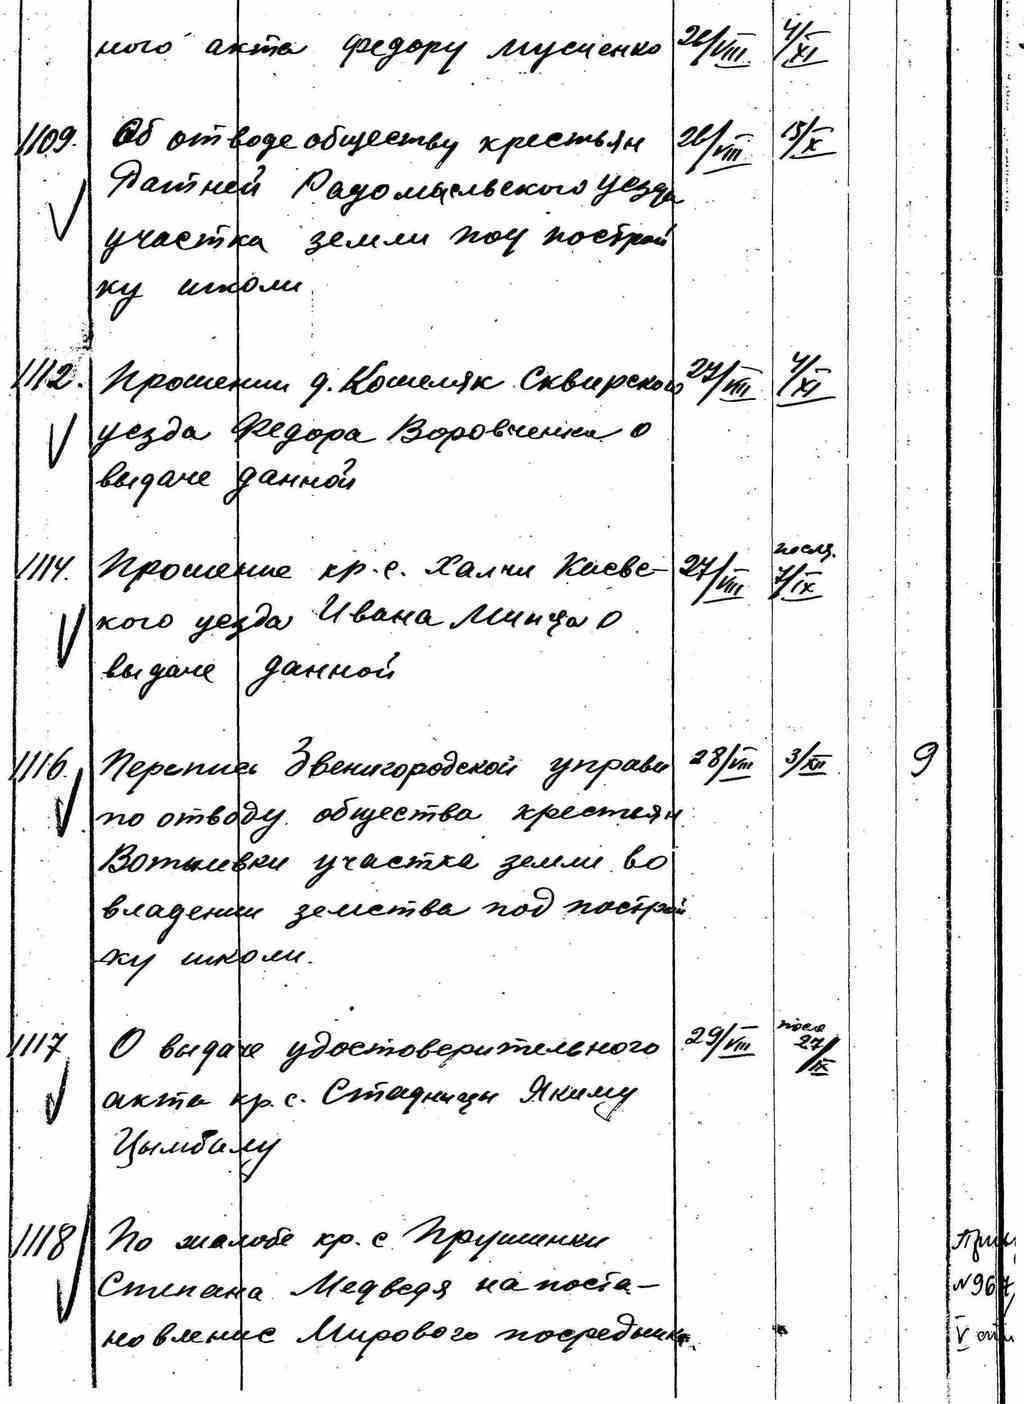 ного акта Федору Мусиенко 26/VIII 4/XI
1109. Об отводе обществу крестьян 26/VIII 15/X
Ратней Радомысльского уезда
участка земли под построй
ку школи
1112. Прошении д. Кошеляк Сквирского 27/VIII 4/XI
уезда Федора Воровченка о
выдаче данной
1114. Прошение кр. с. Халчи Киевс- 27/VIII после 7/IX
кого уезда Ивана Минца о
выдаче данной
1116. Перепись Звенигородской управи 28/VIII 3/XII 9
по отводу общества крестьян
Вотылевки участка земли во
владении земства под построй
ку школи.
1117 О выдаче удостоверительного 29/VIII после 27/IX
акта кр. с. Стадницы Якиму
Цымбалу
1118 По жалобе кр. с. Прушинки
Степана Медведя на поста- №967
новление Мирового посредника. V